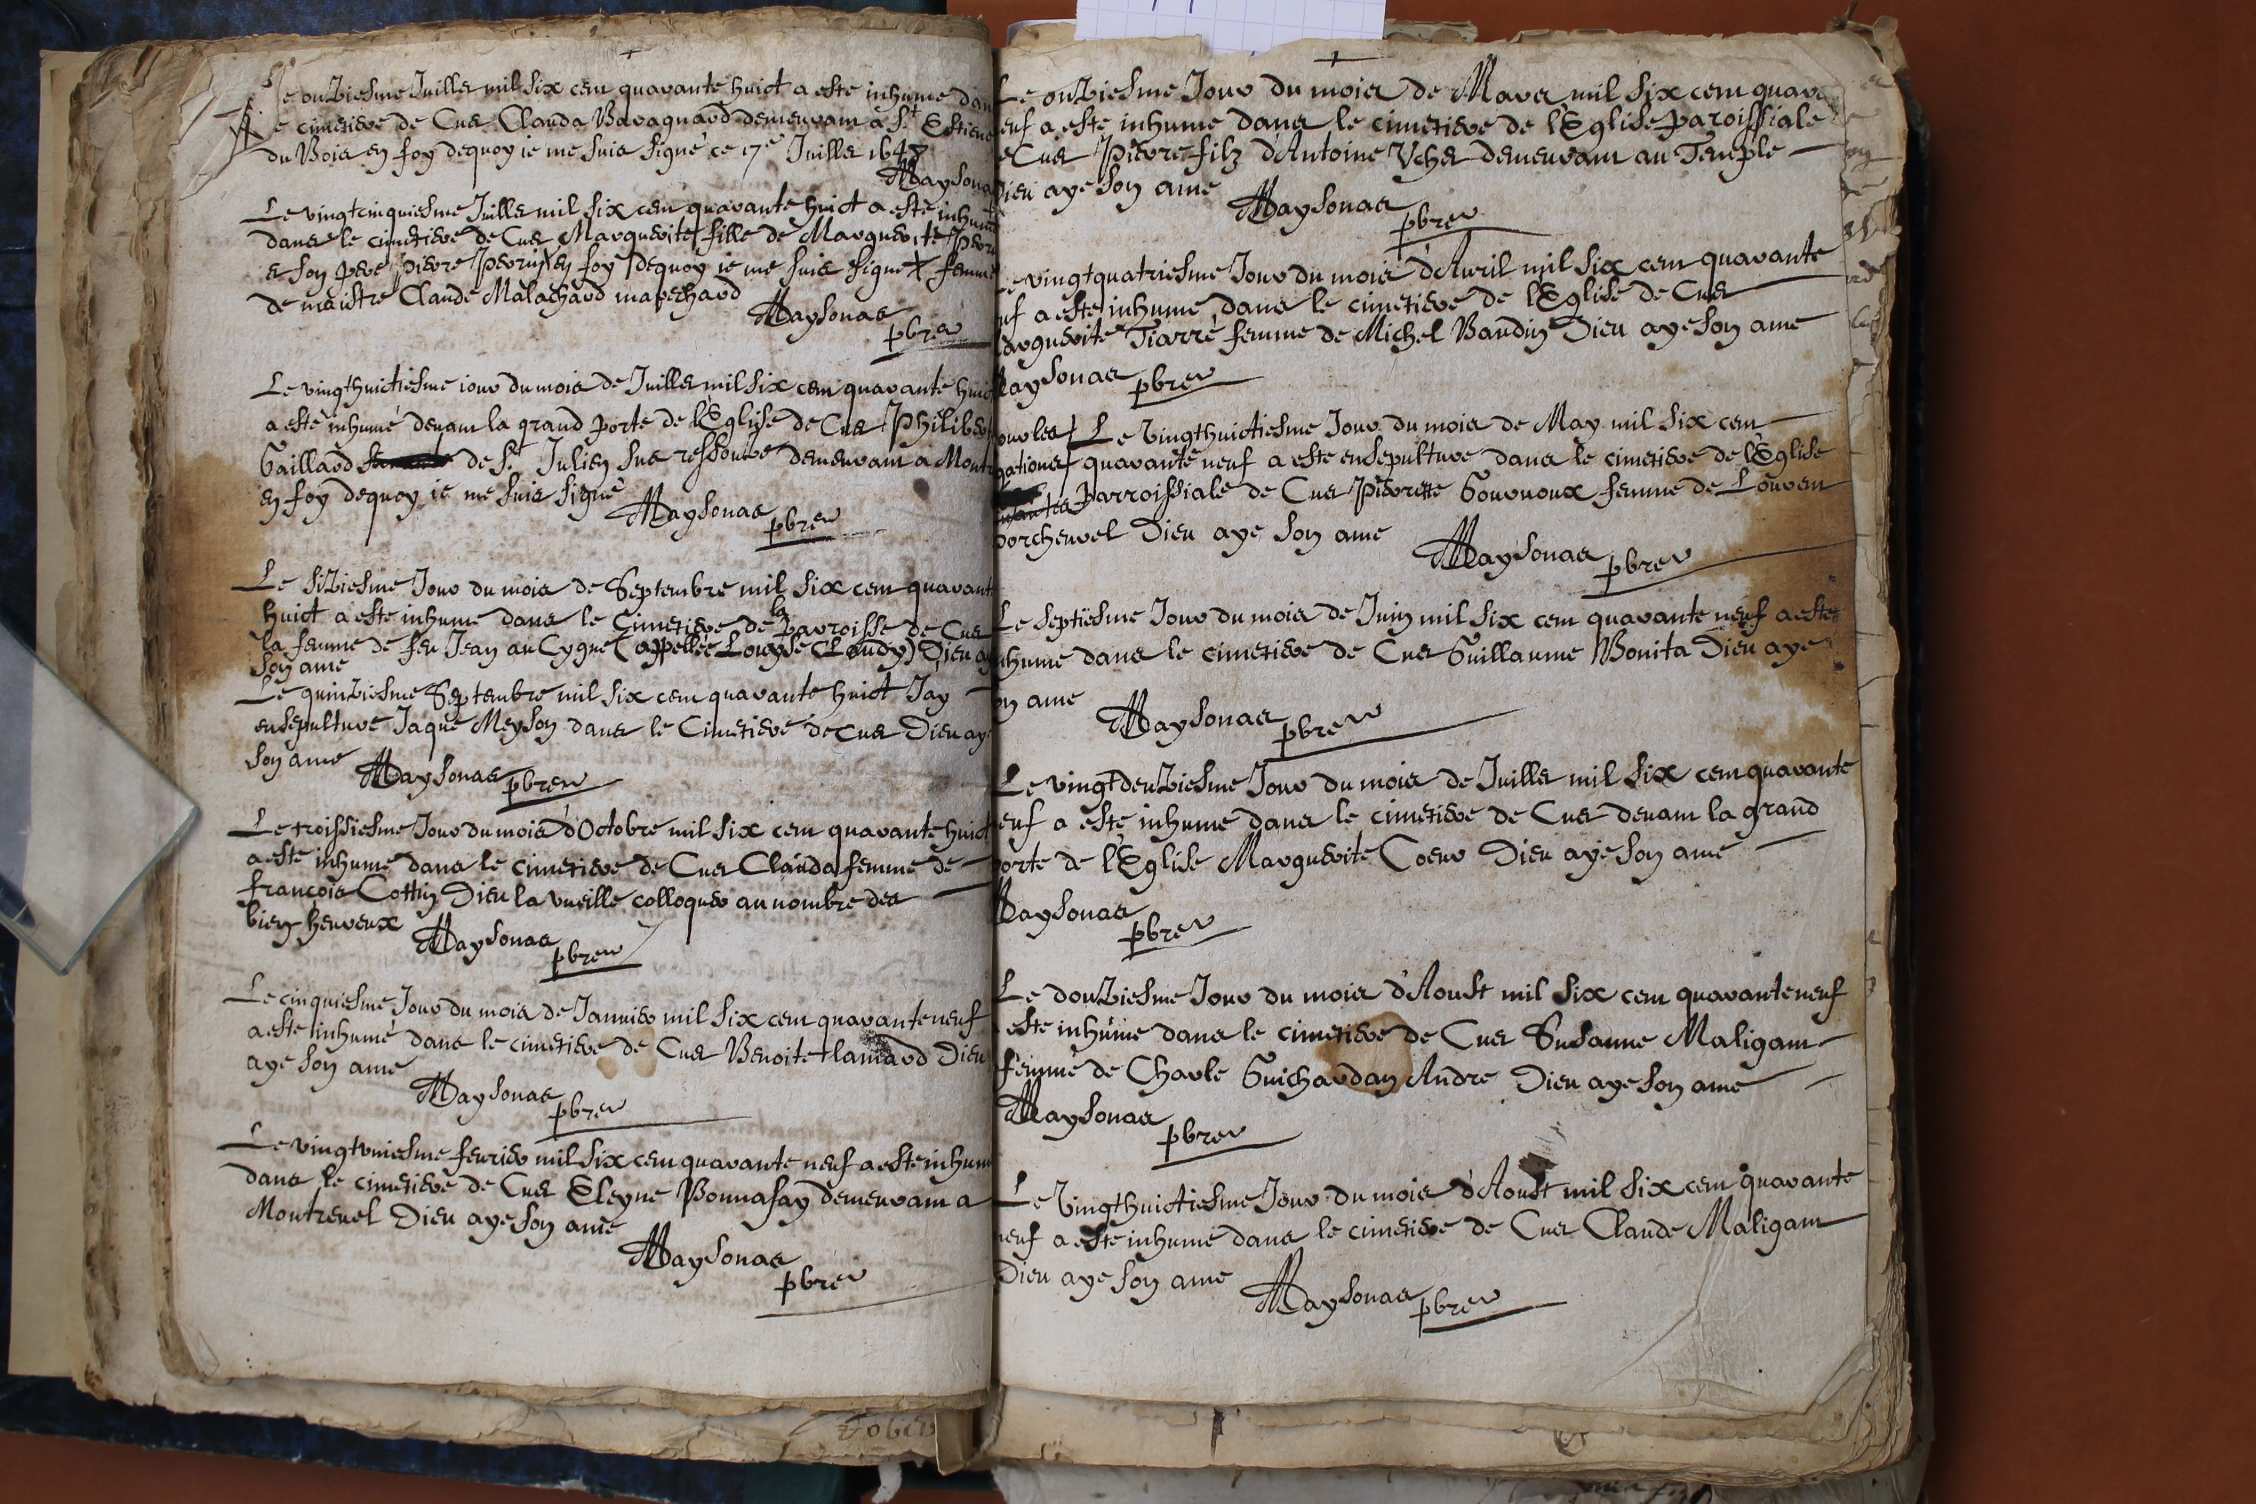 Le onziesme Juillet mil six cent quarante huict a este inhumé dan
le cimetiere de Cuet Clauda Baraguard demeurant a St Estiene
du Bois en foy dequoy ie me suis signé ce 17e Juillet 1648
Maysona
Le vingtcinquiesme Juillet mil six cent quarante huict a esté inhumé
dans le cimetiere de Cuet Marguerite fille de Marguerite
et son pere Pierre Perrin en foy dequoy ie me suis signé + femme
de maistre Claude Malachard mareschard
Maysonas
pbre
Le vingthuictiesme iour du mois de Juillet mil six cent quarante huict
a esté inhumé devant la grand porte de l'Eglise de Cuet Philiber
Gaillard de St Julien sus ressouze demeurant a Mont
en foy dequoy ie me suis signé
Maysonas pbre
Le siziesme Jour du mois de Septembre mil six cent quarant
huict a esté inhume dans le Cimetiere de la parroisse de Cuet
la femme de feu Jean au Cygne (appellée Louyse Claudy) Dieu a
son ame
Le quinziesme Septembre mil six cent quarante huict Jay
ensepulturé Jaque Meyson dans le Cimetiere de Cuet Dieu ay
son ame Maysonas pbre
Le troissiesme Jour du mois d'Octobre mil six cent quarante huict
a esté inhumé dans le cimetiere de Cuet Clauda femme de
françois Cottin Dieu la vueille colloquer au nombre des
bien heureux Maysonas
pbre
Le cinquiesme Jour du mois de Januier mil six cent quarante neuf
a esté inhumé dans le cimetiere de Cuet Benoite Dieu
aye son ame
Maysonas
pbre
Le vingtuniesme feurier mil six cent quarante neuf a este inhum
dans le cimetiere de Cuet Eleyne Bonnafay demeurant a
Montreuel Dieu aye son ame
Maysonas
pbre
Le onziesme Jour du mois de Mars mil six cent quara
euf a esté inhumé dans le cimetiere de l'Eglise paroissiale
e Cuet Pierre filz d'Antoine Vcher demeurant au Temple
Dieu aye son ame Maysonas
pbre
Le vingtquatriesme Jour du mois d'Auril mil six cent quarante
uf a esté inhumé dans le cimetiere de l'Eglise de Cuet
arguerite Tiarre femme de Michel Baudin Dieu aye son ame
Maysonas pbre
Le Vingthuictiesme Jour du mois de May mil six cent
quarante neuf a esté ensepulture dans le cimetiere de l'Eglise
Parroissiale de Cuet Pierrette Gouruoux femme de Louren
porcheurel Dieu aye son ame
Maysonas pbre
Le septiesme Jour du mois de Juin mil six cent quarante neuf a esté
nhumé dans le cimetiere de Cuet Guillaume Bonita Dieu aye
on ame
Maysonas pbre
Le vingtdeuziesme Jour du mois de Juillet mil six cent quarante
euf a esté inhumé dans le cimetiere de Cuet deuant la grand
porte de l'Eglise Marguerite Coeur Dieu aye son ame
Maysonas
pbre
Le douziesme Jour du mois d'Aoust mil six cent quarante neuf
esté inhumé dans le cimetiere de Cuet Susanne Maligam
femme de Charle Guichardan André Dieu aye son ame
Maysonas
pbre
Le Vingthuictiesme Jour du mois d'Aoust mil six cent quarante
neuf a esté inhumé dans le cimetiere de Cuet Claude Maligam
Dieu aye son ame
Maysonas pbre